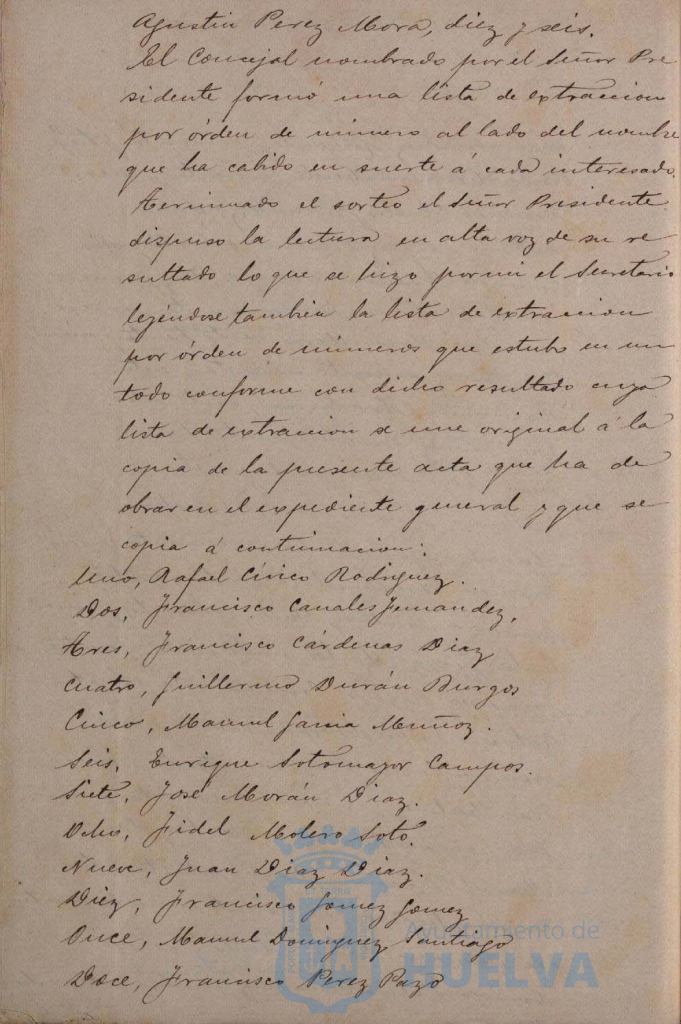 Agustin Perez Mora, diez y seis.
El Concejal nombrado por el Señor Pre
sidente formó una lista de extraccion
por órden de número al lado del nombre
que ha cabido en suerte á cada interesado.
Terminado el sorteo el Señor Presidente
dispuso la lectura en alta voz de su re
sultado lo que se hizo por mi el Secretario
leyéndose tambien la lista de extraccion
por órden de números que estubo en un
todo conforme con dicho resultado cuya
lista de extraccion se une original á la
copia de la presente acta que ha de
obrar en el expediente general y que se
copia á continuacion:
Uno, Rafael Cinco Rodriguez.
Dos, Francisco Canales Fernandez,
Tres, Francisco Cárdenas Diaz
Cuatro, Guillermo Durán Burgos
Cinco, Manuel Garcia Muñoz.
Seis, Enrique Sotomayor Campos.
Siete, José Morán Diaz.
Ocho, Fidel Molero Soto.
Nueve, Juan Diaz Diaz.
Diez, Francisco Gomez Gomez
Once, Manuel Dominguez Santiago
Doce, Francisco Perez Pazo
Ayuntamiento de
HUELVA